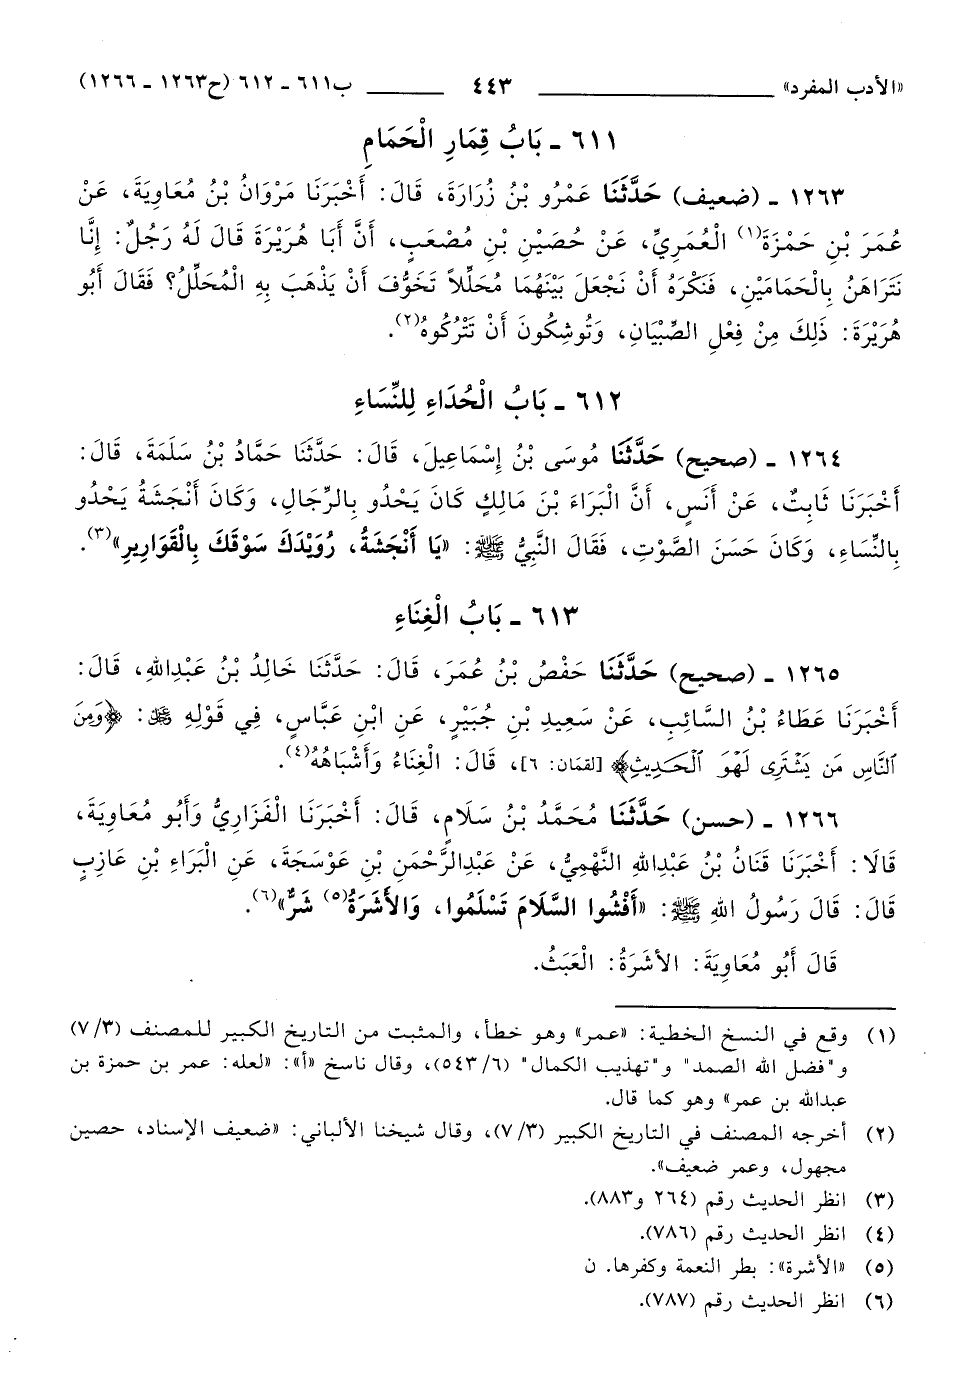 «الأدب المفرد» ٤٤٣ ب٦١١ ـ ٦١٢ (ح١٢٦٣ ـ ١٢٦٦)
٦١١ ـ بَابُ قِمَارِ الْحَمَامِ
١٢٦٣ ـ (ضعيف) حَدَّثَنَا عَمْرُو بْنُ زُرَارَةَ، قَالَ: أَخْبَرَنَا مَرْوَانُ بْنُ مُعَاوِيَةَ، عَنْ
عُمَرَ بْنِ حَمْزَةَ(١) الْعُمَرِيِّ، عَنْ حُصَيْنِ بْنِ مُصْعَبٍ، أَنَّ أَبَا هُرَيْرَةَ قَالَ لَهُ رَجُلٌ: إِنَّا
نَتَرَاهَنُ بِالْحَمَامَيْنِ، فَنَكْرَهُ أَنْ نَجْعَلَ بَيْنَهُمَا مُحَلِّلاً تَخَوُّفَ أَنْ يَذْهَبَ بِهِ الْمُحَلِّلُ؟ فَقَالَ أَبُو
هُرَيْرَةَ: ذَلِكَ مِنْ فِعْلِ الصِّبْيَانِ، وَتُوشِكُونَ أَنْ تَتْرُكُوهُ(٢).
٦١٢ ـ بَابُ الْحُدَاءِ لِلنِّسَاءِ
١٢٦٤ ـ (صحيح) حَدَّثَنَا مُوسَى بْنُ إِسْمَاعِيلَ، قَالَ: حَدَّثَنَا حَمَّادُ بْنُ سَلَمَةَ، قَالَ:
أَخْبَرَنَا ثَابِتٌ، عَنْ أَنَسٍ، أَنَّ الْبَرَاءَ بْنَ مَالِكٍ كَانَ يَحْدُو بِالرِّجَالِ، وَكَانَ أَنْجَشَةُ يَحْدُو
بِالنِّسَاءِ، وَكَانَ حَسَنَ الصَّوْتِ، فَقَالَ النَّبِيُّ ﷺ: «يَا أَنْجَشَةُ، رُوَيْدَكَ سَوْقَكَ بِالْقَوَارِيرِ»(٣).
٦١٣ ـ بَابُ الْغِنَاءِ
١٢٦٥ ـ (صحيح) حَدَّثَنَا حَفْصُ بْنُ عُمَرَ، قَالَ: حَدَّثَنَا خَالِدُ بْنُ عَبْدِاللهِ، قَالَ:
أَخْبَرَنَا عَطَاءُ بْنُ السَّائِبِ، عَنْ سَعِيدِ بْنِ جُبَيْرٍ، عَنِ ابْنِ عَبَّاسٍ، فِي قَوْلِهِ ﷻ: ﴿وَمِنَ
ٱلنَّاسِ مَن يَشْتَرِى لَهْوَ ٱلْحَدِيثِ﴾ [لقمان: ٦]، قَالَ: الْغِنَاءُ وَأَشْبَاهُهُ(٤).
١٢٦٦ ـ (حسن) حَدَّثَنَا مُحَمَّدُ بْنُ سَلَامٍ، قَالَ: أَخْبَرَنَا الْفَزَارِيُّ وَأَبُو مُعَاوِيَةَ،
قَالَا: أَخْبَرَنَا قَنَانُ بْنُ عَبْدِاللهِ النَّهْمِيُّ، عَنْ عَبْدِالرَّحْمَنِ بْنِ عَوْسَجَةَ، عَنِ الْبَرَاءِ بْنِ عَازِبٍ
قَالَ: قَالَ رَسُولُ اللهِ ﷺ: «أَفْشُوا السَّلَامَ تَسْلَمُوا، وَالأَشَرَةُ(٥) شَرٌّ»(٦).
قَالَ أَبُو مُعَاوِيَةَ: الأَشَرَةُ: الْعَبَثُ.
(١) وقع في النسخ الخطية: «عمر» وهو خطأ، والمثبت من التاريخ الكبير للمصنف (٧/٣)
و"فضل الله الصمد" و"تهذيب الكمال" (٥٤٣/٦)، وقال ناسخ «أ»: «لعله: عمر بن حمزة بن
عبدالله بن عمر» وهو كما قال.
(٢) أخرجه المصنف في التاريخ الكبير (٧/٣)، وقال شيخنا الألباني: «ضعيف الإسناد، حصين
مجهول، وعمر ضعيف».
(٣) انظر الحديث رقم (٢٦٤ و٨٨٣).
(٤) انظر الحديث رقم (٧٨٦).
(٥) «الأشرة»: بطر النعمة وكفرها. ن
(٦) انظر الحديث رقم (٧٨٧).